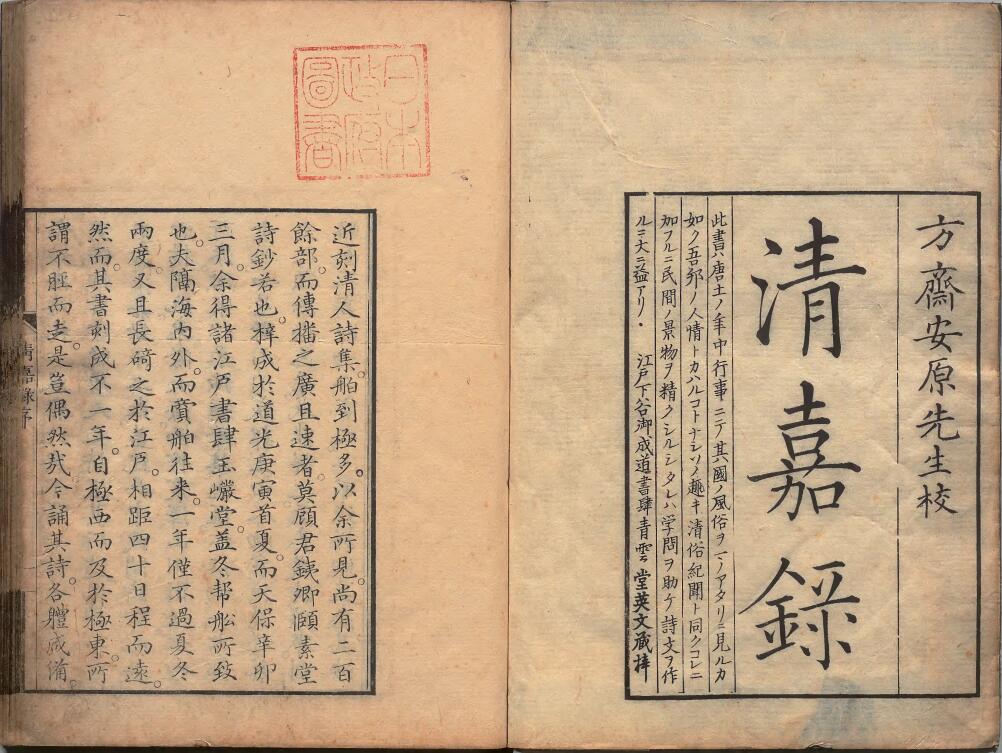 方齋安原先生校
清嘉録
此書ハ唐土ノ年中行事ニテ其國ノ風俗ヲマノアタリニ見ルカ
如ク吾邦ノ人情トカハルコトナシソノ趣キ清俗紀聞ト同クコレニ
加フルニ民間ノ景物ヲ精クシルシタレハ学問ヲ助ケ詩文ヲ作
ルニ大ニ益アリ・ 江戸下谷御成道書肆青雲堂英文蔵梓
日本政府圖書
近刻清人詩集。舶到極多。以余所見。尚有二百
餘部。而傳播之廣且速者。莫顧君銕卿頤素堂
詩鈔若也。梓成於道光庚寅首夏。而天保辛卯
三月。余得諸江戸書肆玉巖堂。盖冬帮舩所致
也。夫隔海内外。而賞舶往来。一年僅不過夏冬
兩度。又且長碕之於江戸。相距四十日程而遠。
然而其書刻成不一年。自極西而及於極東。所
謂不脛而走。是豈偶然哉。今誦其詩。各軆咸備。
清嘉録序